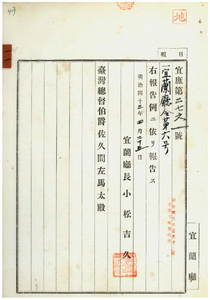 宜庶第二七之一號
宜蘭廳令第六号
右報告例ニ依リ報告ス
明治四十三年四月廿五日
宜蘭廳長小松吉久
臺灣總督伯爵佐久間左馬太殿
宜蘭廳